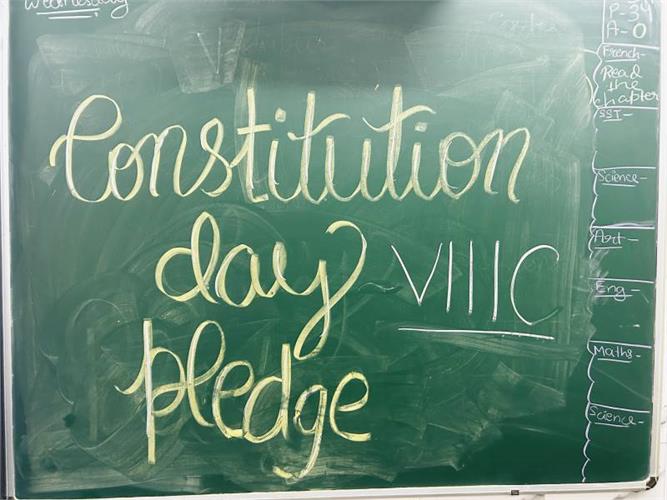 Wednesday
Constitution
day - VIII C
pledge
P-34
A-0
French-
Read
the
chapter
SST-
Science-
Art-
Eng-
Maths-
Science-